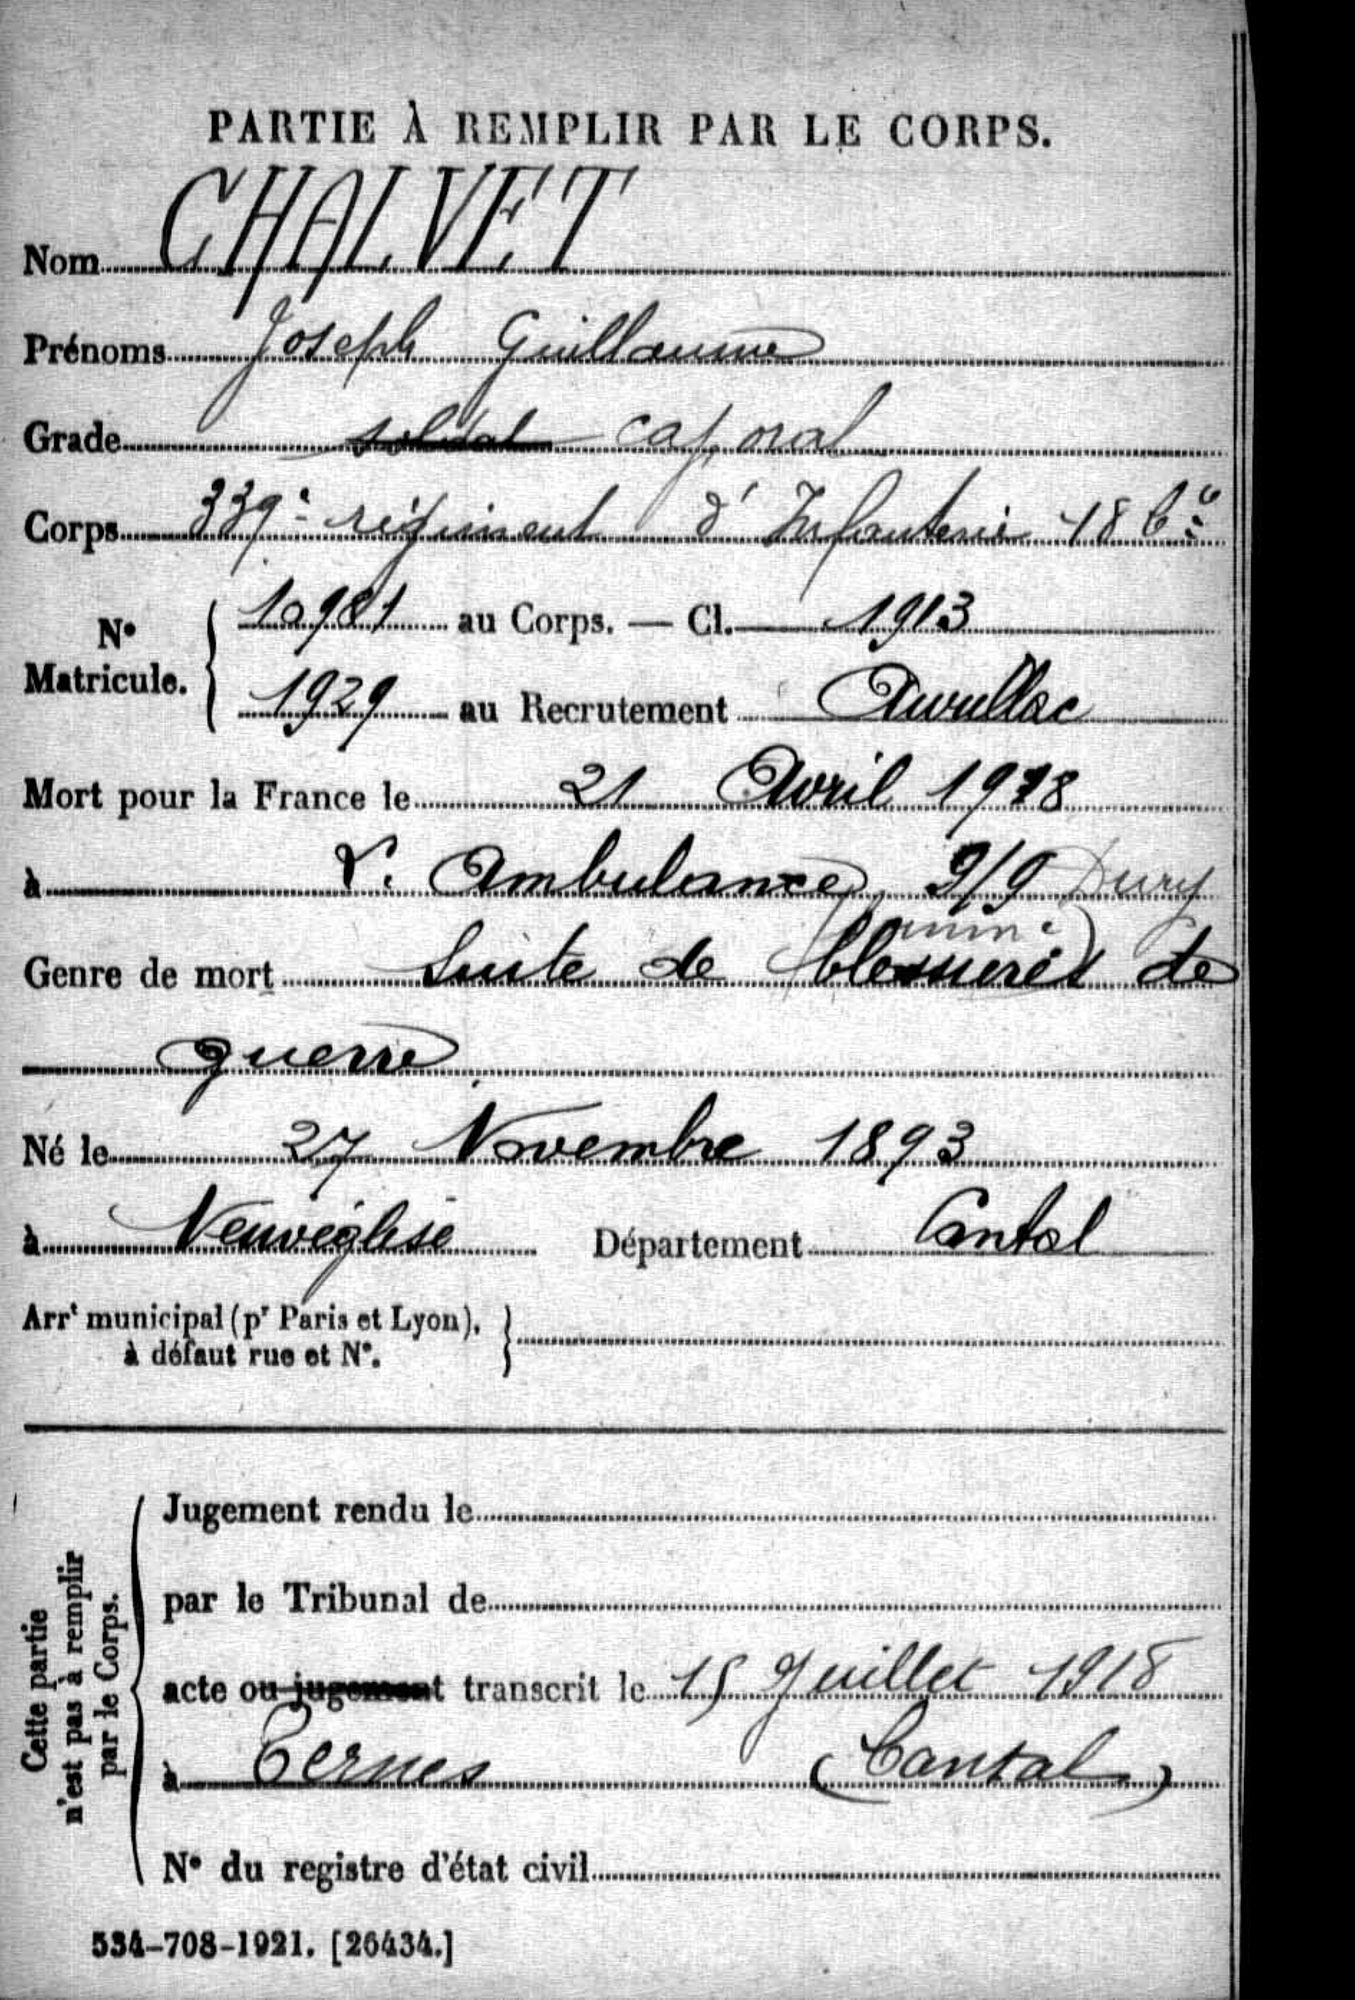 PARTIE À REMPLIR PAR LE CORPS.
Nom CHALVET
Prénoms Joseph Guillaume
Grade soldat caporal
Corps 339e régiment d'Infanterie 18 Cie
N° Matricule. { 10981 au Corps. — Cl. 1913
1929 au Recrutement Aurillac
Mort pour la France le 21 Avril 1918
à l'Ambulance 9/9 Dury
Genre de mort Suite de blessures de
guerre
Né le 27 Novembre 1893
à Neuvéglise Département Cantal
Arrt municipal (pr Paris et Lyon),
à défaut rue et N°.
Cette partie
n'est pas à remplir
par le Corps.
Jugement rendu le
par le Tribunal de
acte ou jugement transcrit le 15 Juillet 1918
à Ternes (Cantal)
N° du registre d'état civil
534-708-1921. [26434.]